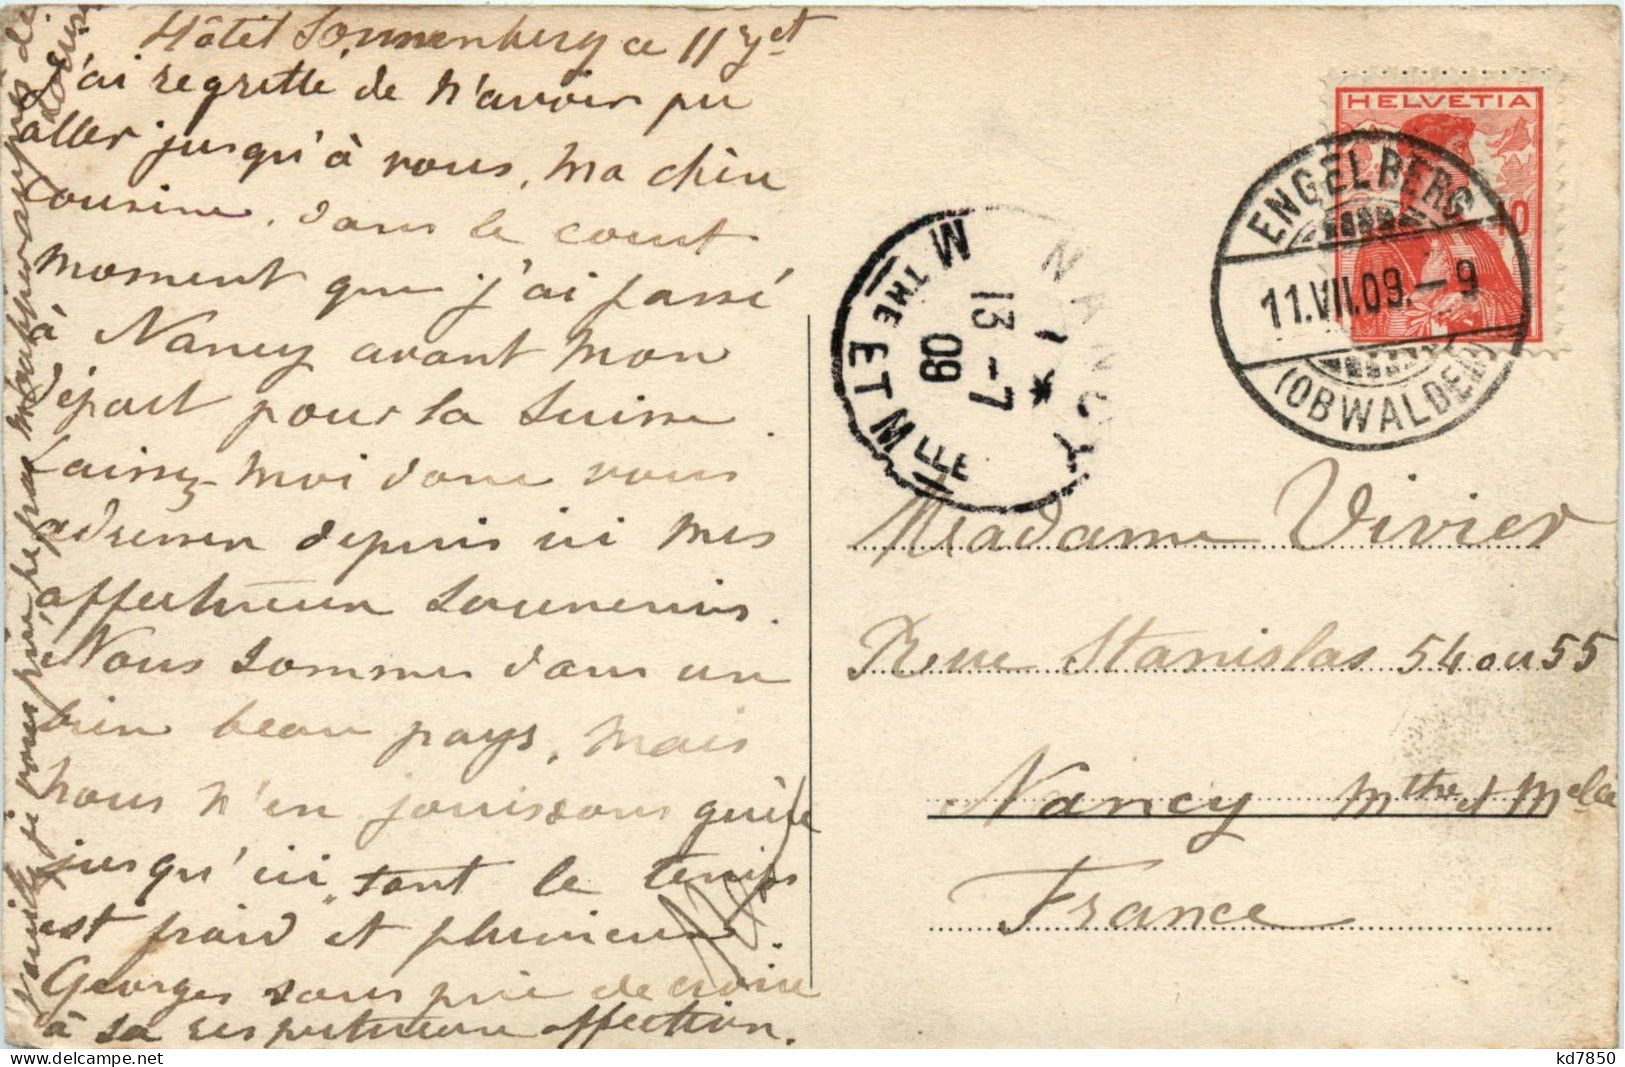 Hôtel Sonnenberg ce 11 Jet
J'ai regretté de n'avoir pu
aller jusqu'à vous, ma chère
cousine, dans le court
moment que j'ai passé
à Nancy avant mon
départ pour la Suisse.
Laissez-moi donc vous
adresser depuis ici mes
affectueux souvenirs.
Nous sommes dans un
bien beau pays, mais
nous n'en jouissons guère
jusqu'ici, tant le temps
est froid et pluvieux.
Georges vous prie de croire
à sa respectueuse affection.
je vous prie ne pas
HELVETIA
10
ENGELBERG
11.VII.09.-9
(OBWALDEN)
NANCY
13-7
09
MTHE ET MLLE
Madame Vivier
Rue Stanislas 54 ou 55
Nancy Mthe et Melle
France
kd7850